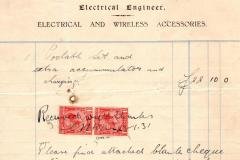 Electrical Engineer.
ELECTRICAL AND WIRELESS ACCESSORIES.
1 Portable Set and
extra accumulators and
charging.
Received with thanks
1.31
Please find attached blank cheque